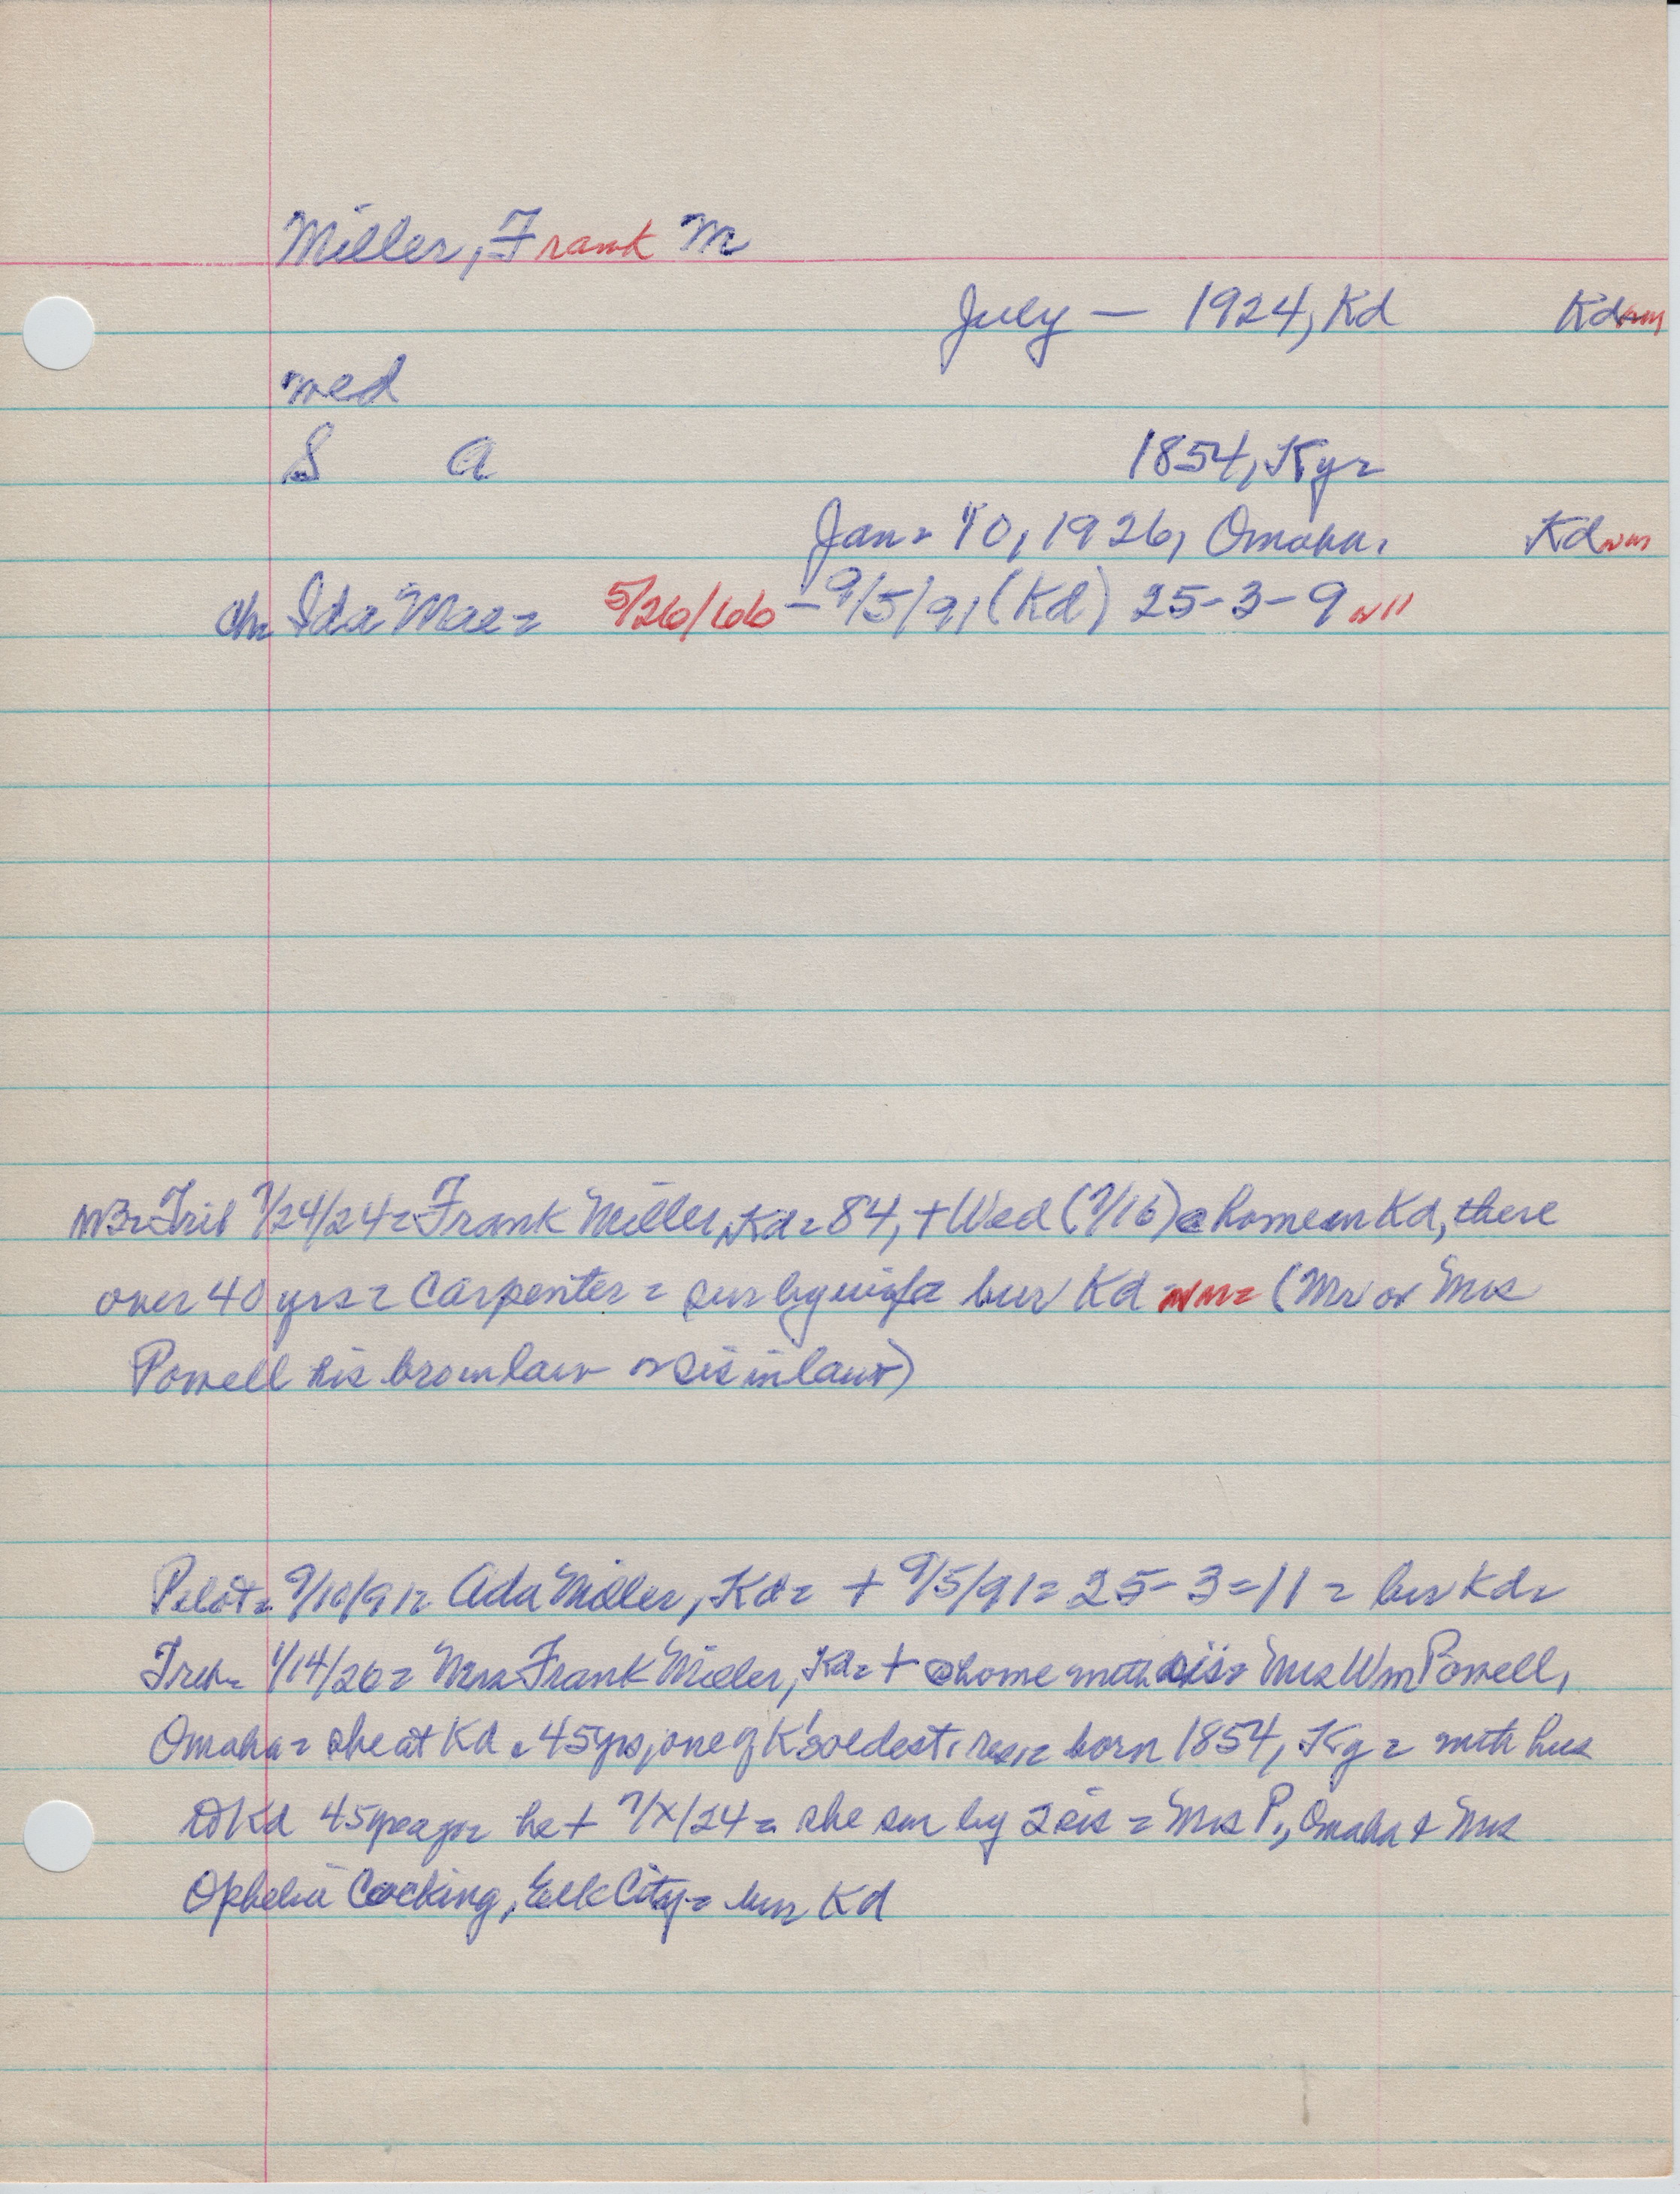 Miller, Frank M
July — 1924, Kd Kd nm
med
S A 1854, Ky=
Jan= 10, 1926, Omaha, Kd nm
ch= Ida Mae= 5/26/66 - 9/5/91 (Kd) 25-3-9
Trib 7/24/24= Frank Miller, Kd= 84, + Wed (7/16) @ home in Kd, there
over 40 yrs= Carpenter= sur by wife bur Kd nm= (Mr or Mrs
Powell his bro in law or sis in law)
Pilot= 9/10/91= Ada Miller, Kd= + 9/5/91= 25-3=11= bur Kd=
Trib= 1/14/26= Mrs Frank Miller, Kd= + @ home with sis= Mrs Wm Powell,
Omaha= she at Kd 45 yrs, one of K's oldest res= born 1854, Ky= with hus
to Kd 45 yr ago= he + 7/x/24= she sur by 2 sis= Mrs P., Omaha & Mrs
Ophelia Cocking, Elk City= bur Kd